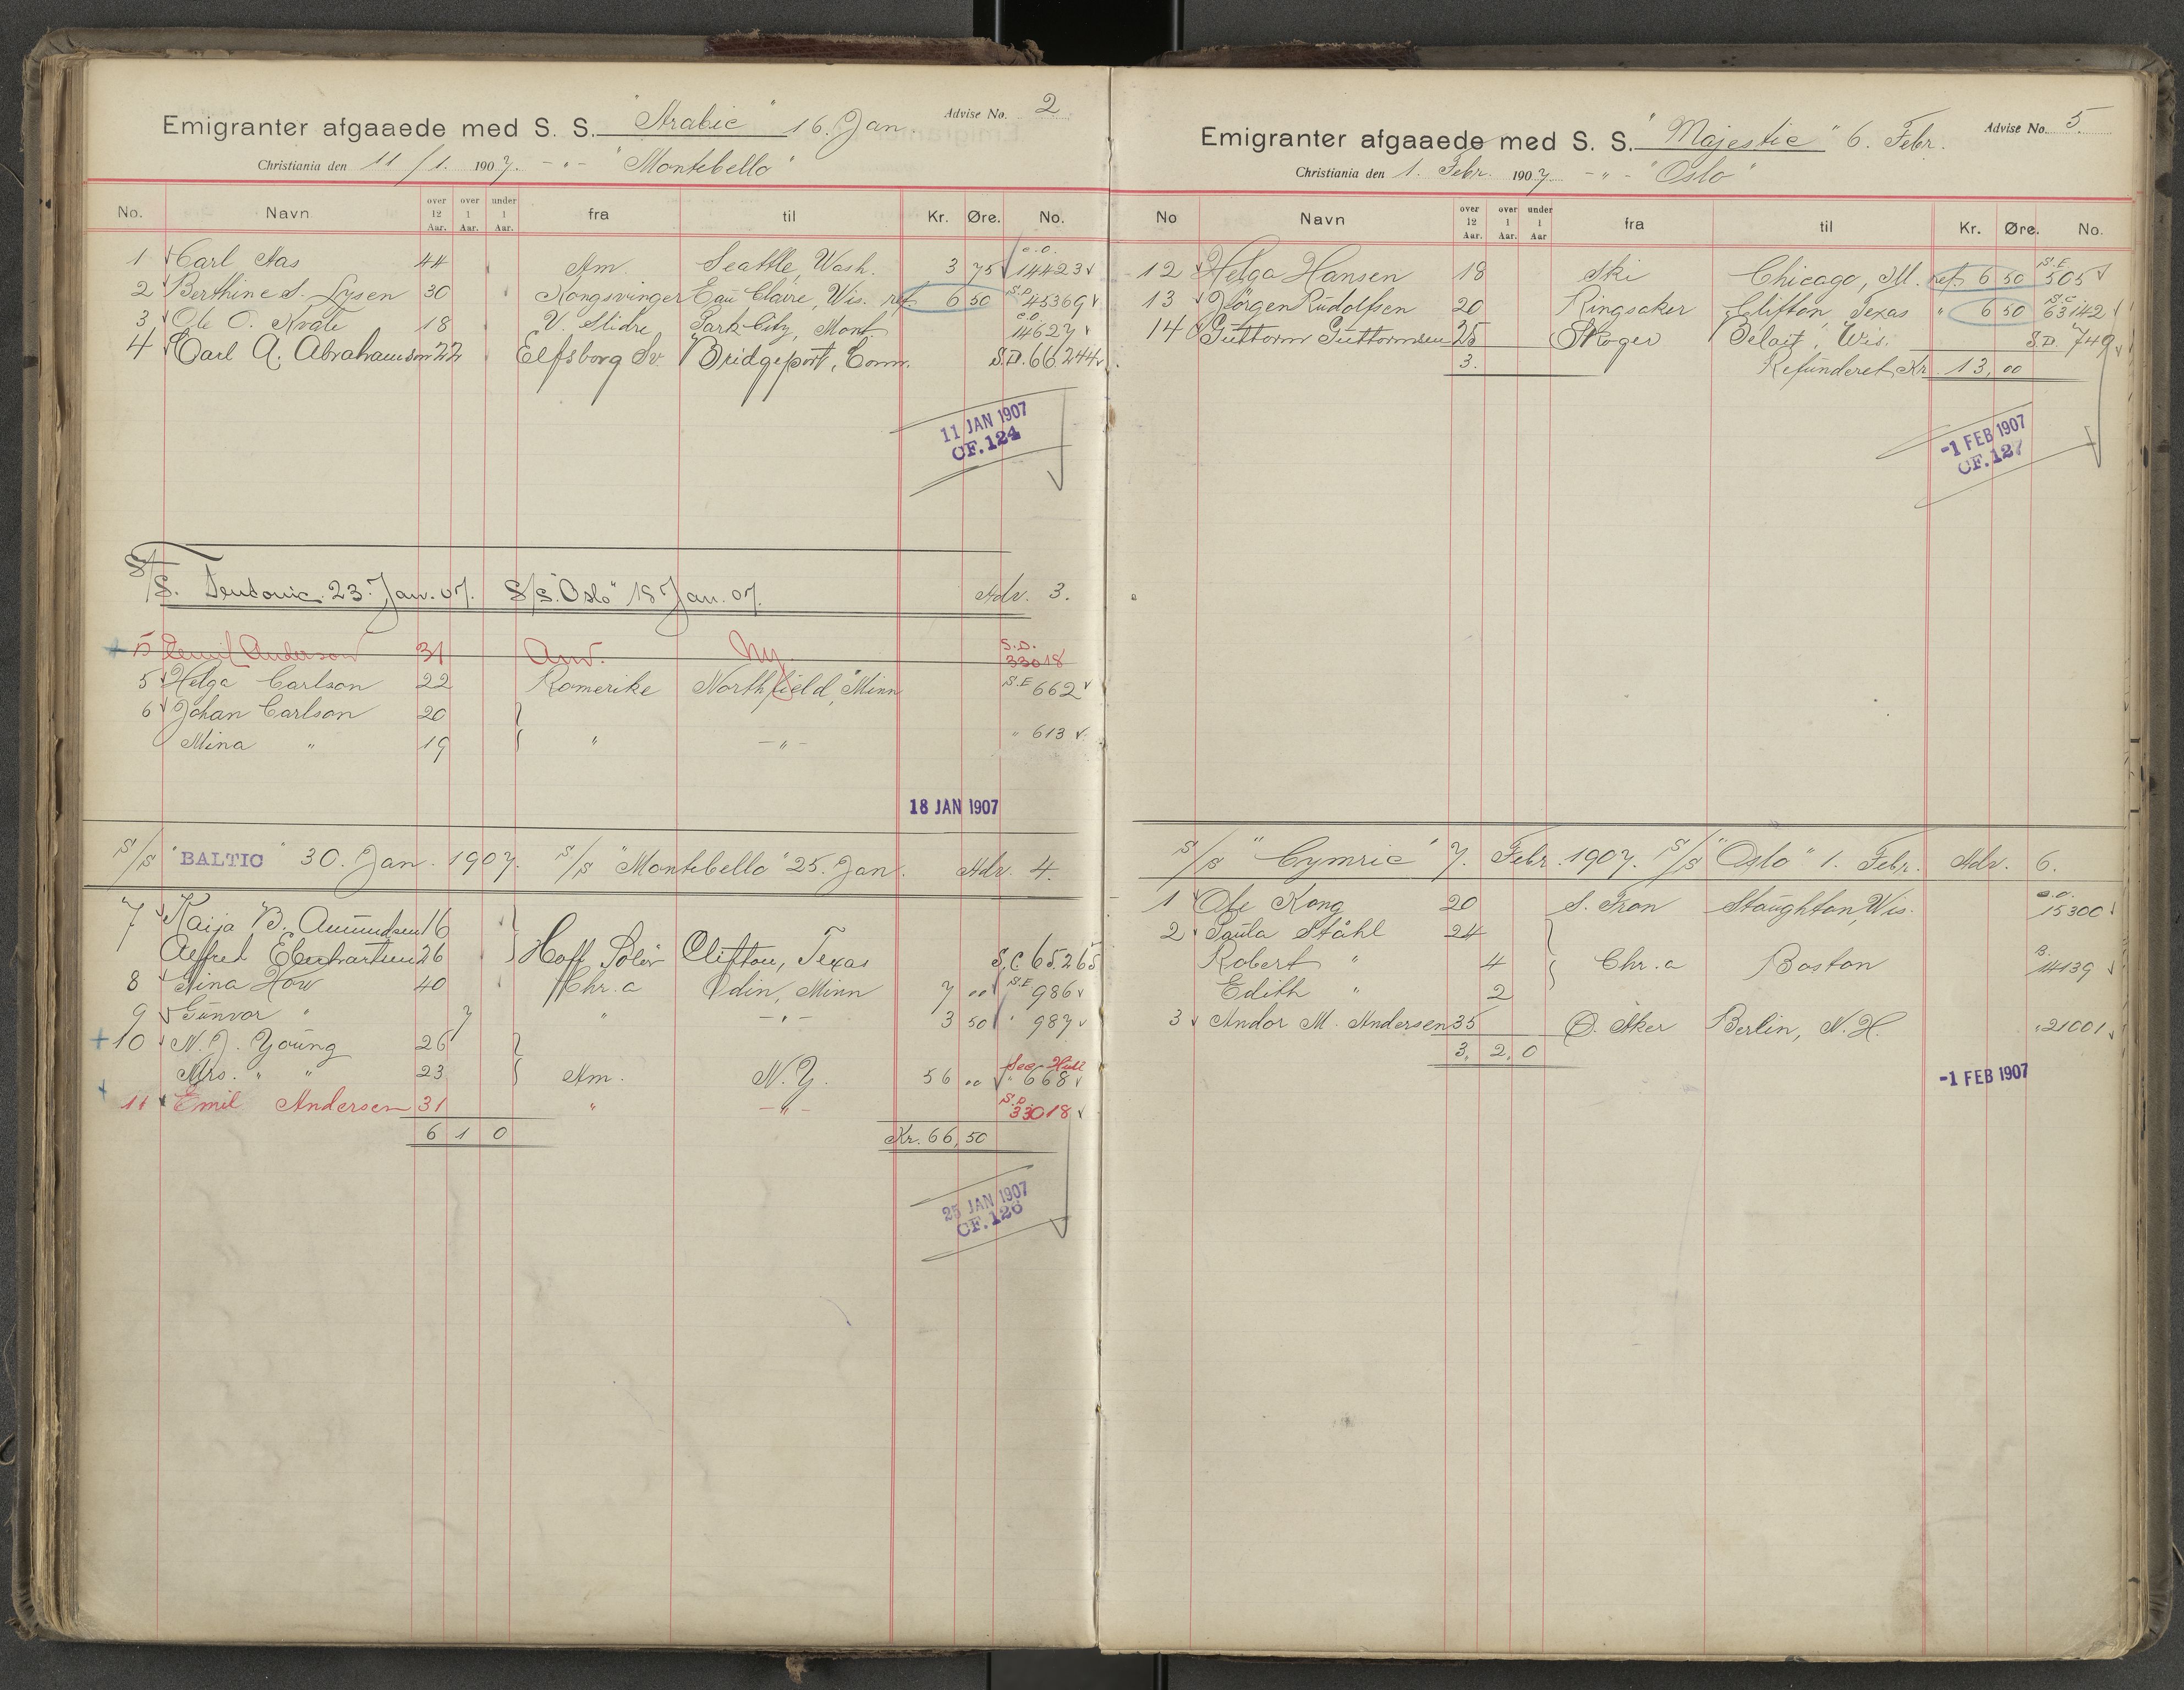 Emigranter afgaaede med S. S. "Arabic" 16. Jan. Advise No. 2
Christiania den 11/1. 1907. -"- "Montebello"
No. Navn over 12 Aar. over 1 Aar. under 1 Aar. fra til Kr. Øre. No.
1 Carl Aas 44 Am. Seattle, Wash. 3 75 C.O. 14423
2 Berthine S. Lysen 30 Kongsvinger Eau Claire, Wis. ref. 6 50 S.D. 45369
3 Ole O. Kvale 18 V. Slidre Park City, Mont. C.O. 14627
4 Carl A. Abrahamson 22 Elfsborg Sv. Bridgeport, Conn. S.D. 66244
11 JAN 1907
CF. 124
S/S. Teutonic 23. Jan. 07. S/S. "Oslo" 18 Jan. 07. Adv. 3.
5 Emil Anderson 31 Am. Ny S.D. 33018
5 Helga Carlson 22 Romerike Northfield, Minn S.E 662
6 Johan Carlson 20
Mina " 19 " -"- " 613
18 JAN 1907
S/S "BALTIC" 30. Jan. 1907. S/S "Montebello" 25. Jan. Adv. 4.
7 Kaija B. Amundsen 16
Alfred 26 Hoff Solør Clifton, Texas S.C. 65265
8 Nina How 40 Chr.a Odin, Minn 7 00 S.E 986
9 Gunvor " 7 " -"- 3 50 " 987
+ 10 N. J. Young 26
Mrs. " " 23 Am. N.Y. 56 00 See Hull " 668
+ 11 Emil Andersen 31 " -"- S.D. 33018
6 1 0 Kr. 66,50
25 JAN 1907
CF. 126
Emigranter afgaaede med S. S. "Majestic" 6. Febr. Advise No. 5.
Christiania den 1. Febr. 1907 -"- "Oslo"
No Navn over 12 Aar. over 1 Aar. under 1 Aar fra til Kr. Øre. No.
12 Helga Hansen 18 Ski Chicago, Ill. ref. 6 50 S.E 505
13 Jörgen Rudolfsen 20 Ringsaker Clifton, Texas " 6 50 S.C 63142
14 Guttorm Guttormsen 25 Skoger Beloit, Wis. S.D. 749
3. Refunderet Kr. 13,00
-1 FEB 1907
CF. 127
S/S "Cymric" 7. Febr. 1907. S/S "Oslo" 1. Febr. Adv. 6.
1 Ole Kong 20 S. Fron Stoughton, Wis. C.O. 15300
2 Paula Ståhl 24
Robert " 4 Chr.a Boston B. 14139
Edith " 2
3 Andor M. Andersen 35 Ø. Aker Berlin, N.H. " 21001
3. 2. 0
-1 FEB 1907